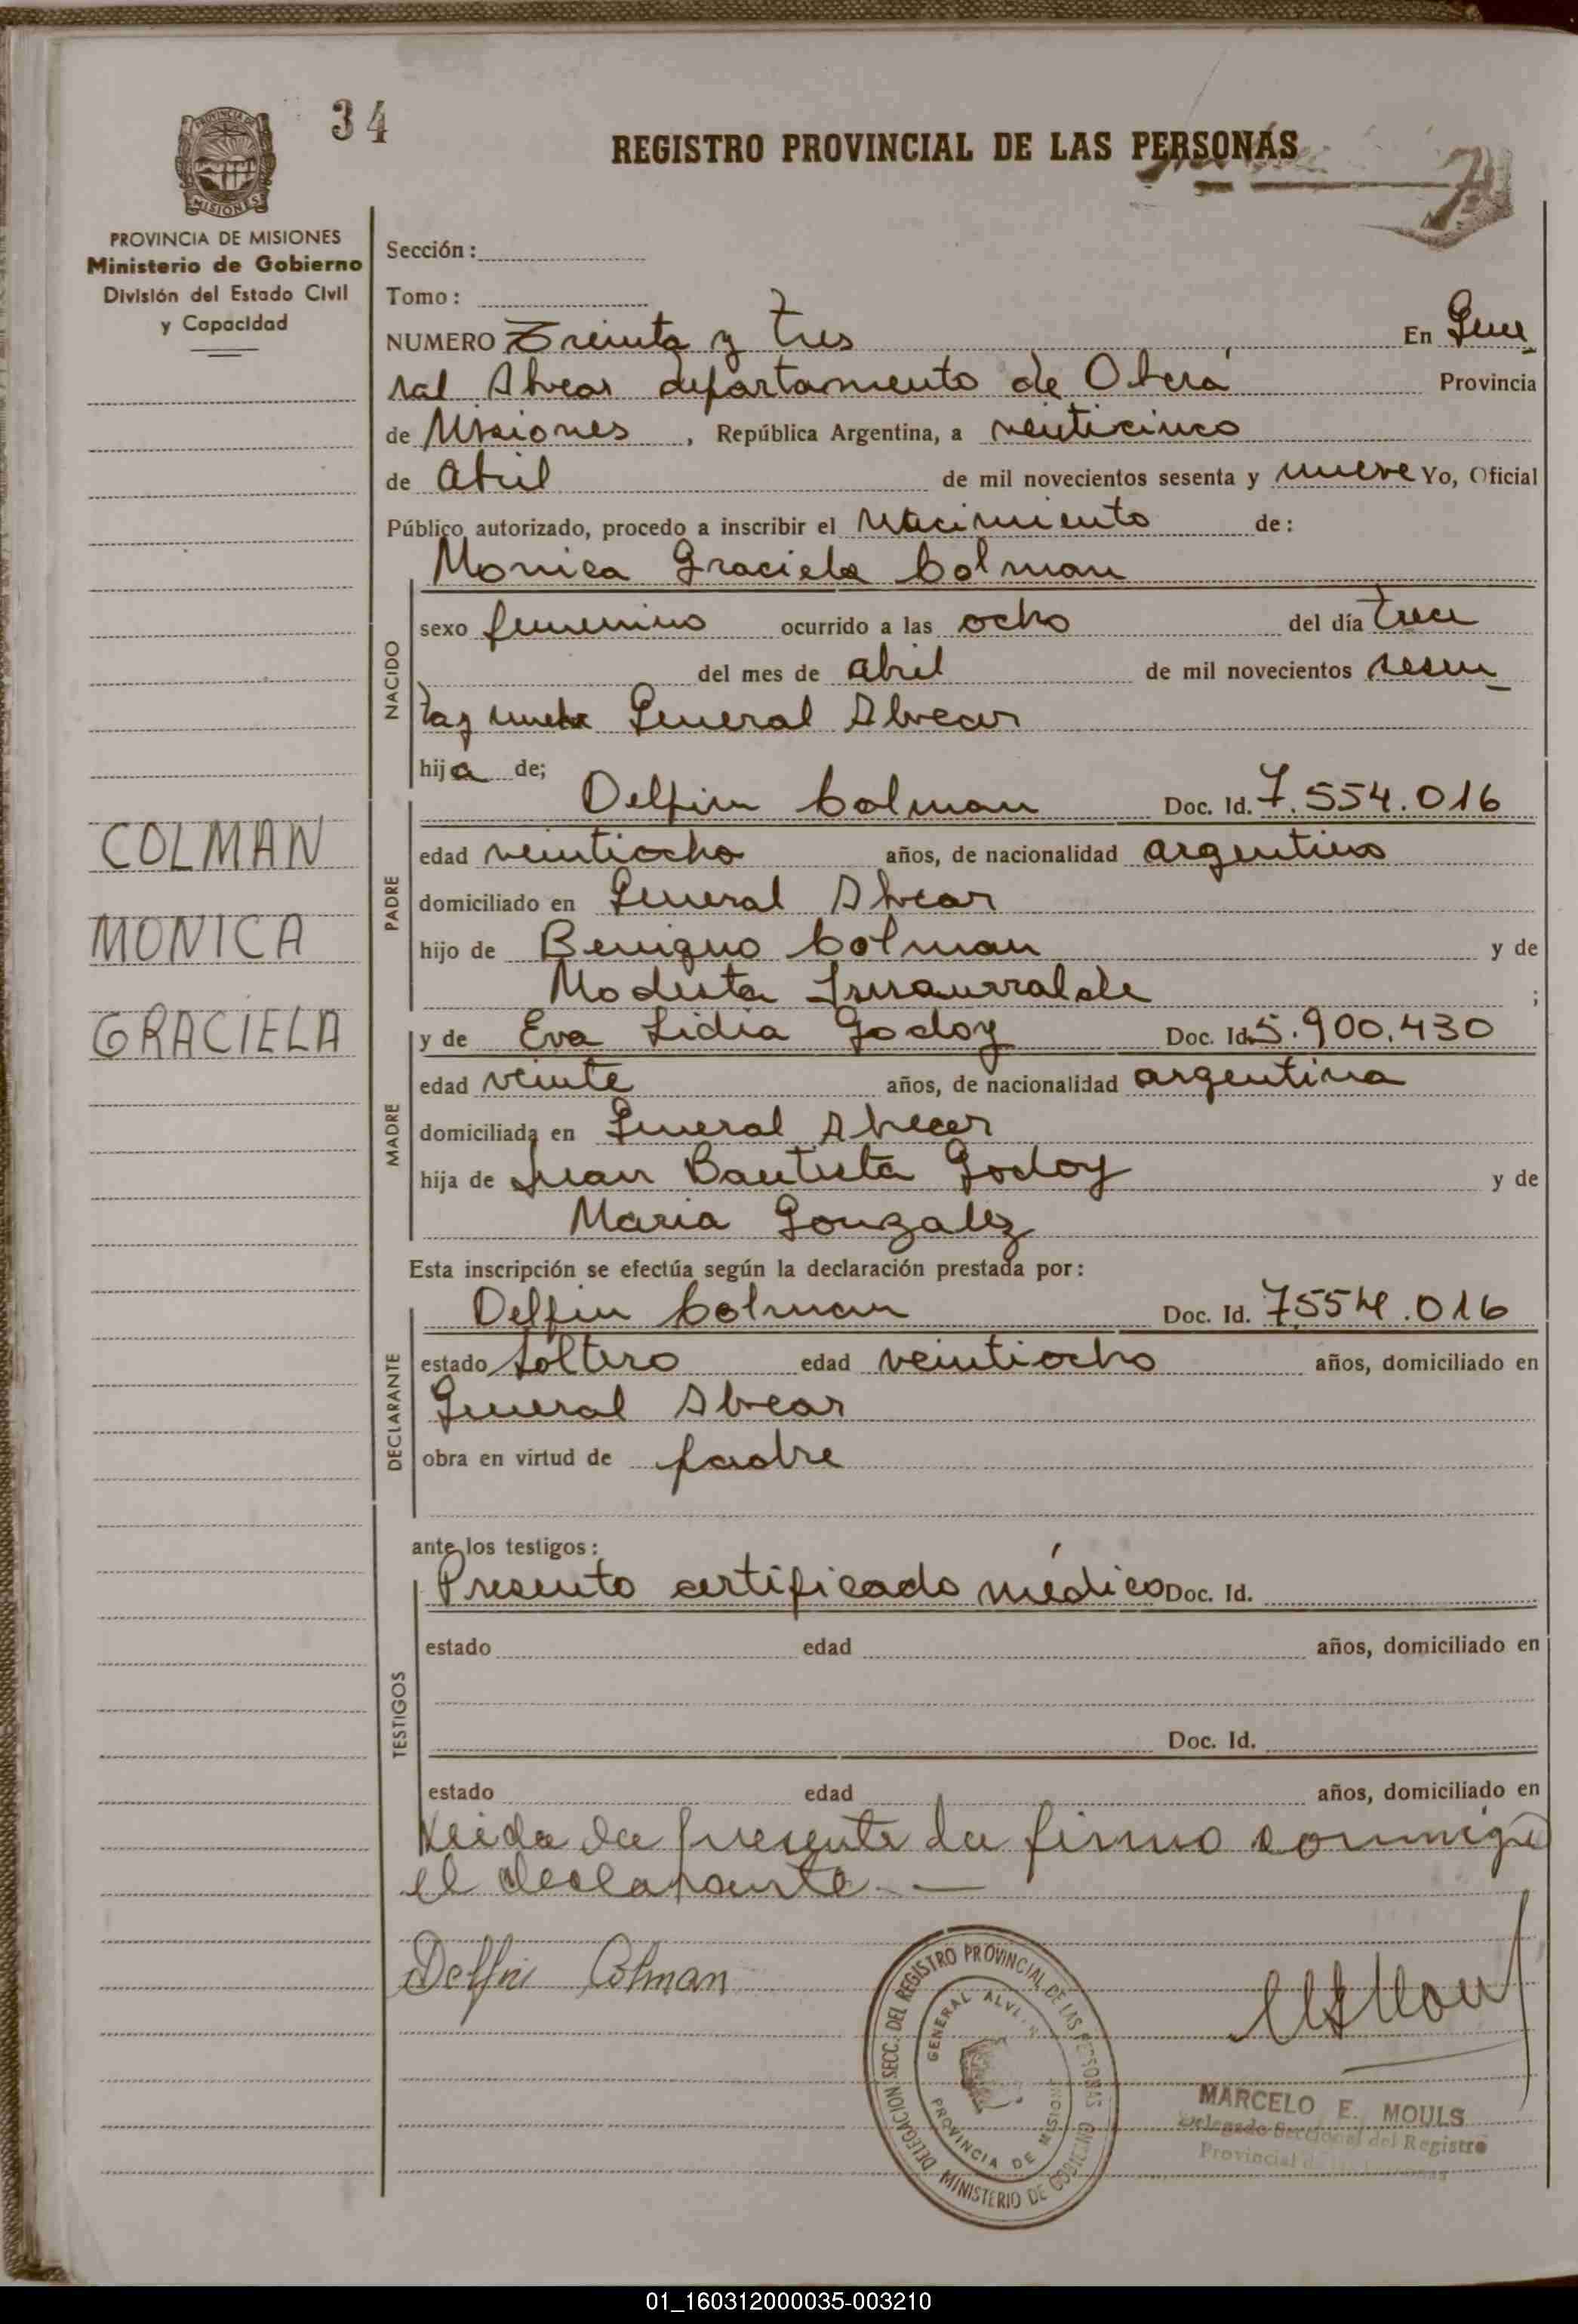 34
REGISTRO PROVINCIAL DE LAS PERSONAS
PROVINCIA DE MISIONES
Ministerio de Gobierno
División del Estado Civil
y Capacidad
Sección:
Tomo:
NUMERO Treinta y tres En Gene
ral Alvear departamento de Oberá Provincia
de Misiones, República Argentina, a veinticinco
de abril de mil novecientos sesenta y nueve Yo, Oficial
Público autorizado, procedo a inscribir el Nacimiento de:
Monica Graciela Colman
NACIDO
sexo femenino ocurrido a las ocho del día trece
del mes de abril de mil novecientos sesen
ta y nueve General Alvear
hija de;
COLMAN
MONICA
GRACIELA
PADRE
Delfin Colman Doc. Id. 7.554.016
edad veintiocho años, de nacionalidad argentino
domiciliado en General Alvear
hijo de Benigno Colman y de
Modesta ;
MADRE
y de Eva Lidia Godoy Doc. Id. 5.900.430
edad veinte años, de nacionalidad argentina
domiciliada en General Alvear
hija de Juan Bautista Godoy y de
Maria Gonzalez
Esta inscripción se efectúa según la declaración prestada por:
DECLARANTE
Delfin Colman Doc. Id. 7.554.016
estado soltero edad veintiocho años, domiciliado en
General Alvear
obra en virtud de padre
ante los testigos:
TESTIGOS
Presento certificado médico Doc. Id.
estado edad años, domiciliado en
Doc. Id.
estado edad años, domiciliado en
Leida la presente la firma conmigo
el declarante. —
Delfin Colman
DELEGACION SECC. DEL REGISTRO PROVINCIAL DE LAS PERSONAS
MINISTERIO DE GOBIERNO
GENERAL ALVEAR
PROVINCIA DE MISIONES
MARCELO E. MOULS
Delegado Seccional del Registro
Provincial de las Personas
01_160312000035-003210